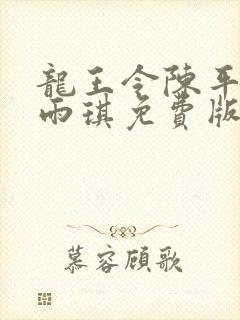 龍王令陳平
雨琪免費版
慕容顧歌